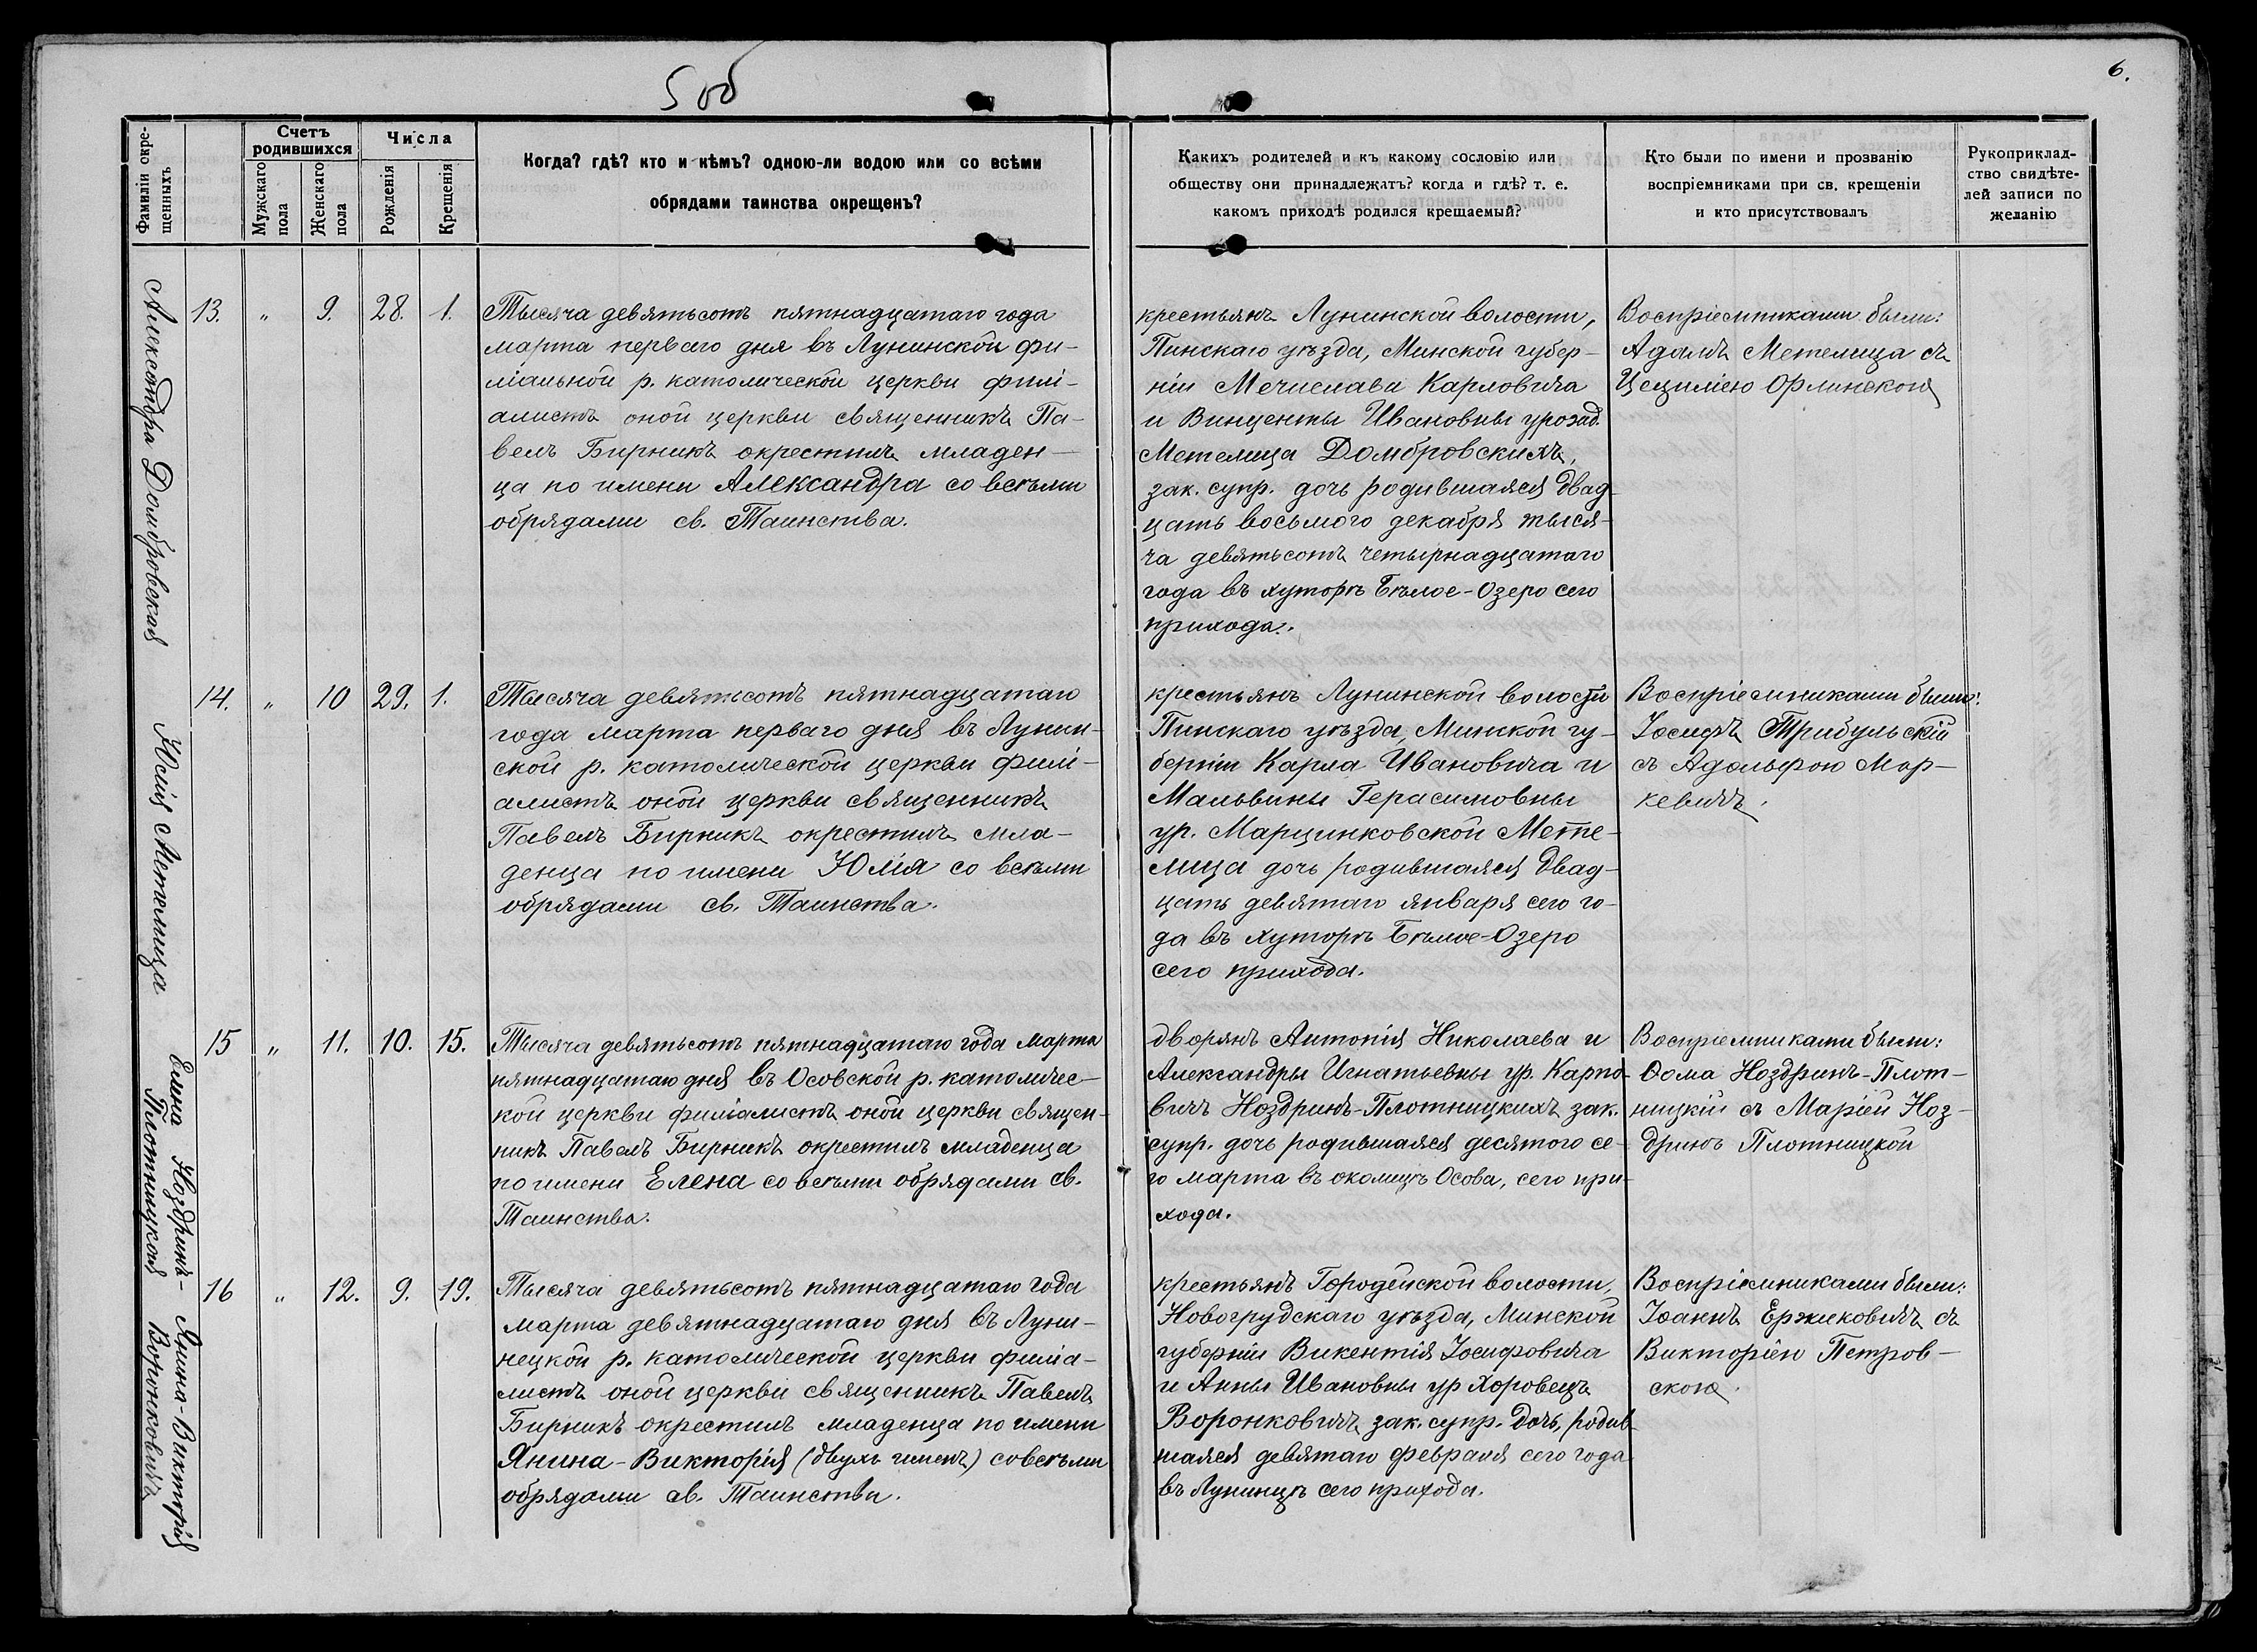 5 об
6.
Фамиліи окре-
щенныхъ
Счетъ
родившихся
Мужскаго
пола
Женскаго
пола
Числа
Рожденія
Крещенія
Когда? гдѣ? кто и кѣмъ? одною-ли водою или со всѣми
обрядами таинства окрещенъ?
Какихъ родителей и къ какому сословію или
обществу они принадлежатъ? когда и гдѣ? т. е.
какомъ приходѣ родился крещаемый?
Кто были по имени и прозванію
воспріемниками при св. крещеніи
и кто присутствовалъ
Рукоприклад-
ство свидѣте-
лей записи по
желанію
Александра Домбровская
13. " 9. 28. 1.
Тысяча девятьсотъ пятнадцатаго года
марта перваго дня въ Лунинской фи-
ліальной р. католической церкви филі-
алистъ оной церкви священникъ Па-
велъ Бирникъ окрестилъ младен-
ца по имени Александра со всѣми
обрядами св. Таинства.
крестьянъ Лунинской волости,
Пинскаго уѣзда, Минской губер-
ніи Мечислава Карловича
и Винценты Ивановны урожд.
Метелица Домбровскихъ,
зак. супр. дочь родившаяся двад-
цать восьмого декабря тыся-
ча девятьсотъ четырнадцатаго
года въ хуторѣ Бѣлое-Озеро сего
прихода.
Воспріемниками были:
Адамъ Метелица съ
Цециліею Орлинскою
Юлія Метелица
14. " 10 29. 1.
Тысяча девятьсотъ пятнадцатаго
года марта перваго дня въ Лунин-
ской р. католической церкви филі-
алистъ оной церкви священникъ
Павелъ Бирникъ окрестилъ мла-
денца по имени Юлія со всѣми
обрядами св. Таинства.
крестьянъ Лунинской волости
Пинскаго уѣзда, Минской гу-
берніи Карла Ивановича и
Мальвины Герасимовны
ур. Марцинковской Мете-
лица дочь родившаяся двад-
цать девятаго января сего го-
да въ хуторѣ Бѣлое-Озеро
сего прихода.
Воспріемниками были:
Іосифъ Трибульскій
съ Адольфою Мар-
кевичъ.
Елена Ноздринъ-
Плотницкая
15 " 11. 10. 15.
Тысяча девятьсотъ пятнадцатаго года марта
пятнадцатаго дня въ Осовской р. католичес-
кой церкви филіалистъ оной церкви священ-
никъ Павелъ Бирникъ окрестилъ младенца
по имени Елена со всѣми обрядами св.
Таинства.
дворянъ Антонія Николаева и
Александры Игнатьевны ур. Карпо-
вичъ Ноздринъ-Плотницкихъ зак.
супр. дочь родившаяся десятого се-
го марта въ околицѣ Осова, сего при-
хода.
Воспріемниками были:
Ѳома Ноздринъ-Плот-
ницкій съ Маріей Ноз-
дринъ Плотницкой
Янина-Викторія
Воронковичъ
16 " 12. 9. 19.
Тысяча девятьсотъ пятнадцатаго года
марта девятнадцатаго дня въ Луни-
нецкой р. католической церкви филіа-
листъ оной церкви священникъ Павелъ
Бирникъ окрестилъ младенца по имени
Янина-Викторія (двухъ именъ) со всѣми
обрядами св. Таинства.
крестьянъ Городейской волости,
Новогрудскаго уѣзда, Минской
губерніи Викентія Іосифовича
и Анны Ивановны ур Хоровецъ
Воронковичъ зак. супр. дочь, родив-
шаяся девятаго февраля сего года
въ Лунинцѣ сего прихода.
Воспріемниками были:
Іоаннъ Ержиковичъ съ
Викторіею Петров-
скою.